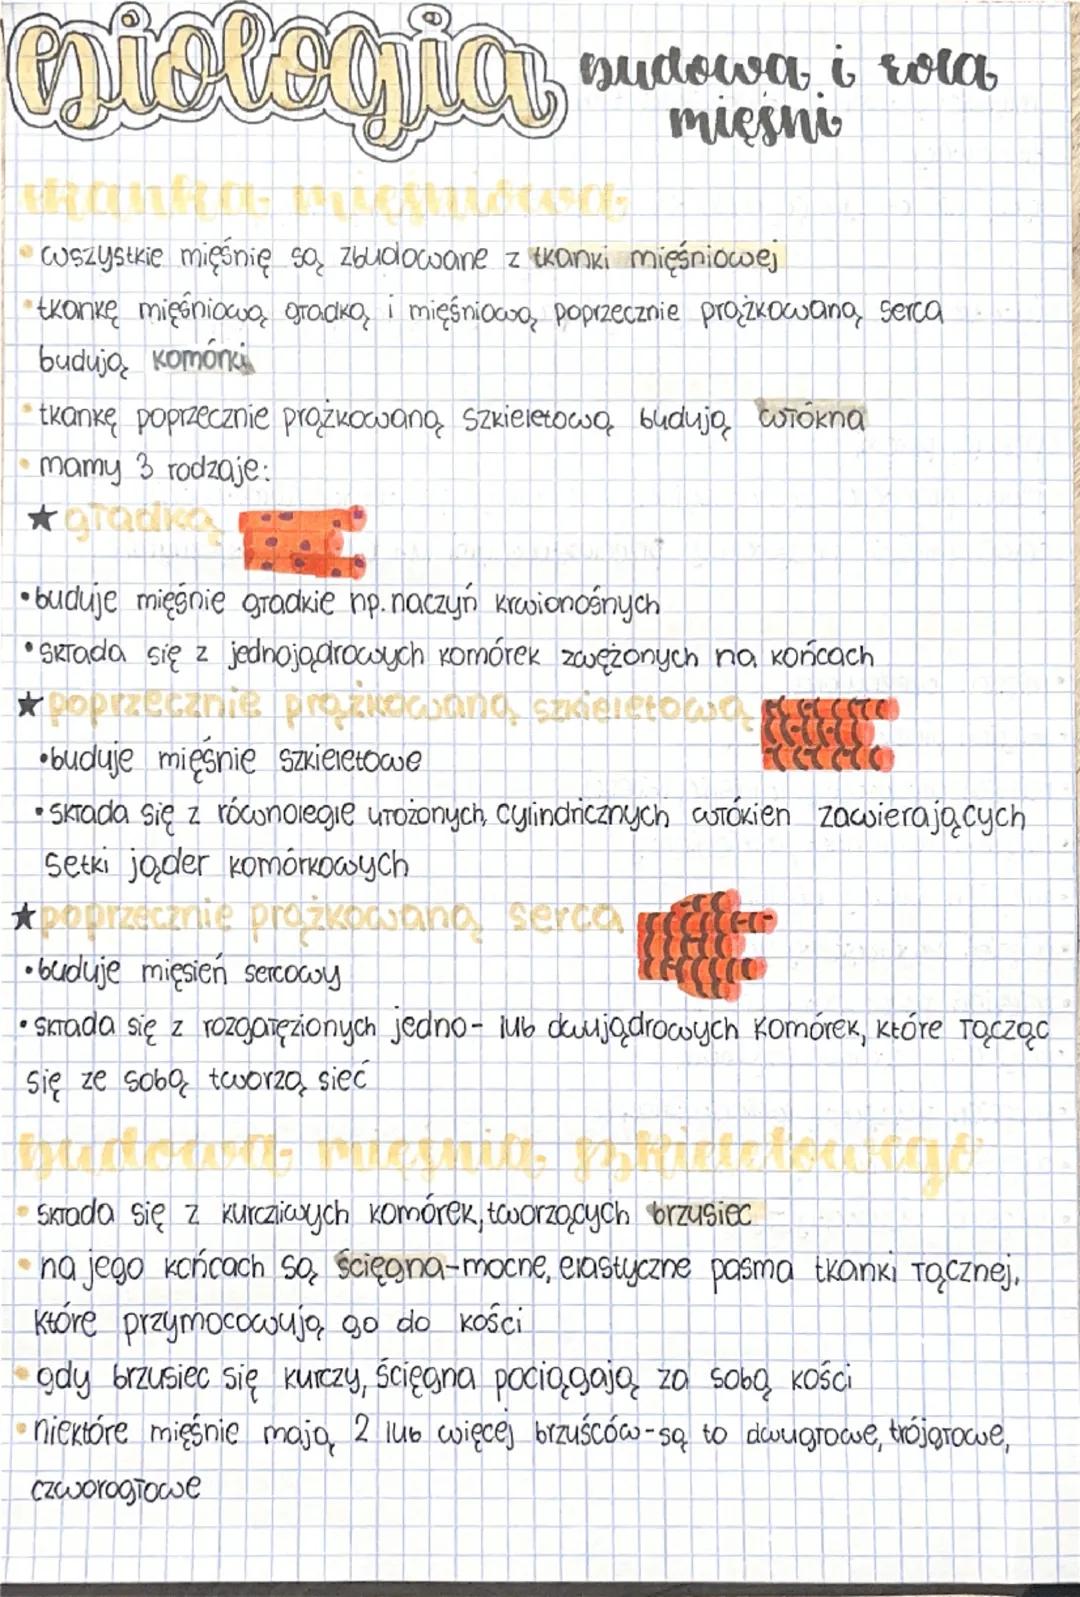 Biologia budowa i rola
mięśni
tkanka mięśniowa
• wszystkie mięśnię są zbudowane z tkanki mięśniowej
• tkankę mięśniową gładką i mięśniową poprzecznie prążkowaną serca
budują komórki
• tkankę poprzecznie prążkowaną szkieletową budują włókna
• mamy 3 rodzaje:
★ gładką
• buduje mięśnie gładkie np. naczyń krwionośnych
• składa się z jednojądrowych komórek zwężonych na końcach
★ poprzecznie prążkowaną szkieletową
• buduje mięśnie szkieletowe
• składa się z równolegle ułożonych, cylindricznych włókien zawierających
setki jąder komórkowych
★ poprzecznie prążkowaną serca
• buduje mięsień sercowy
• składa się z rozgałęzionych jedno- lub dwujądrowych komórek, które łącząc
się ze sobą tworzą sieć
budowa mięśnia szkieletowego
• składa się z kurczliwych komórek, tworzących brzusiec
• na jego końcach są ścięgna-mocne, elastyczne pasma tkanki łącznej,
które przymocowują go do kości
• gdy brzusiec się kurczy, ścięgna pociągają za sobą kości
• niektóre mięśnie mają 2 lub więcej brzuśców-są to dwugłowe, trójgłowe,
czworogłowe